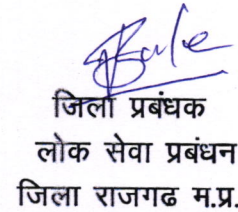 जिला प्रबंधक
लोक सेवा प्रबंधन
जिला राजगढ म.प्र.